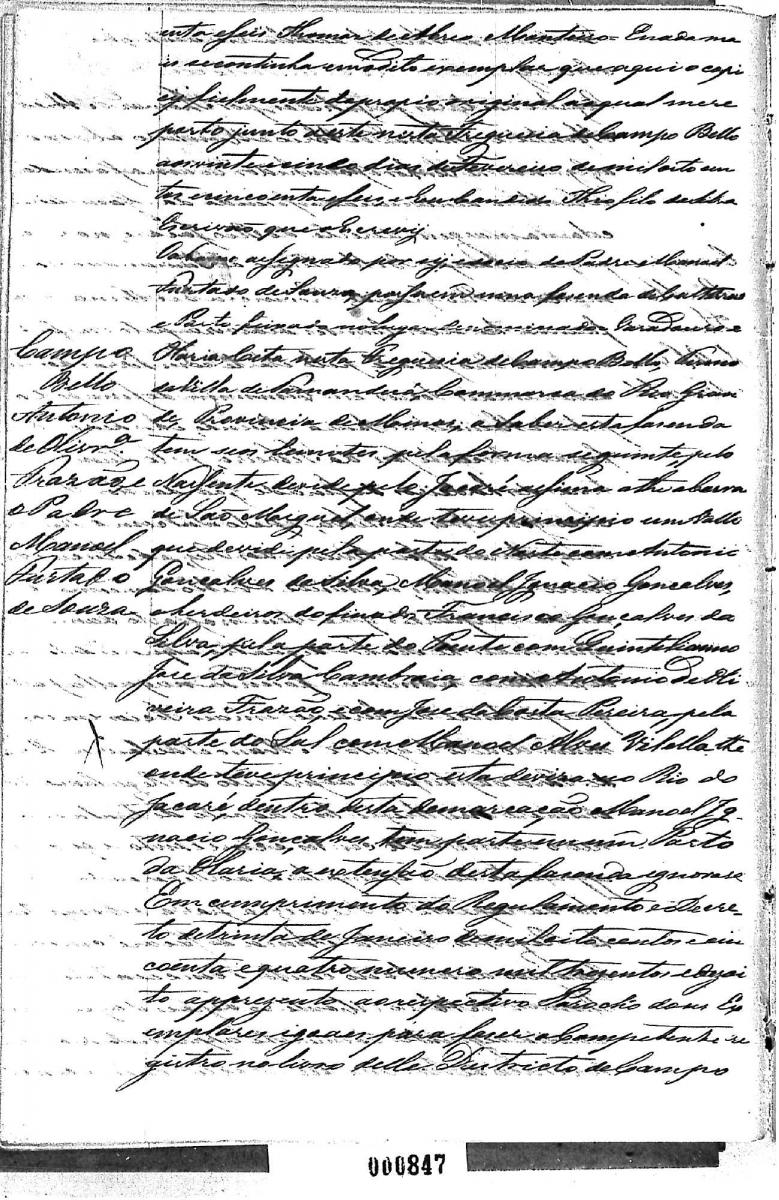 enta e seis Thomas de Abreo Monteiro = E nada ma
is se continha em o dito exemplar que aqui o copi
ei fielmente do proprio original ao qual me re
porto junto a este nesta Freguesia de Campo Bello
aos vinte e cinco dias de Fevereiro de mil oito cen
tos e cincoenta e seis e Theofilo da Silva
Escrivão que o Escrevy
O abaixo assignado por si, e do Padre Manoel
Furtado de Souza, possuem uma fazenda de Culturas
e no lugar denominado e
Olaria Cita nesta Freguesia de Campo Bello, Termo
da Villa de Tamanduá, Commarca do Rio Gran
de, Provincia de Minas, a saber esta fazenda
tem seos lemites pela forma seguinte, pelo
Nascente devide pelo Jacaré assima athe a barra
de São Miguel, onde teve principio um Vallo
que devide pela parte do Norte com Antonio
Gonçalves da Silva, Manoel Ignacio Gonçalves,
e herdeiros do finado Francisco Gonçalves da
Silva, pela parte do Poente com Quintiliano
Jose da Silva Cambraia, com Antonio de Oli
veira Frazão, e com Jose da Costa Pereira, pela
parte do Sul com Manoel Alves Vilella the
onde teve principio esta deviza no Rio do
Jacaré, dentro desta demarcação Manoel Ig-
nacio Gonçalves, tem parte em um Pasto
da Olaria, a extensão desta fazenda ignorase
Em cumprimento do Regulamento e Decre-
to de trinta de Janeiro de mil oito centos e cin
coenta e quatro numero mil trezentos e dezoi
to appresento ao respectivo Parocho dous Ex
emplares igoaes para fazer o Competente re
gistro no livro delle Districto de Campo
Campo
Bello
Antonio
de Olivrª
Frazão, e
o Padre
Manoel
Furtado
de Souza
000847